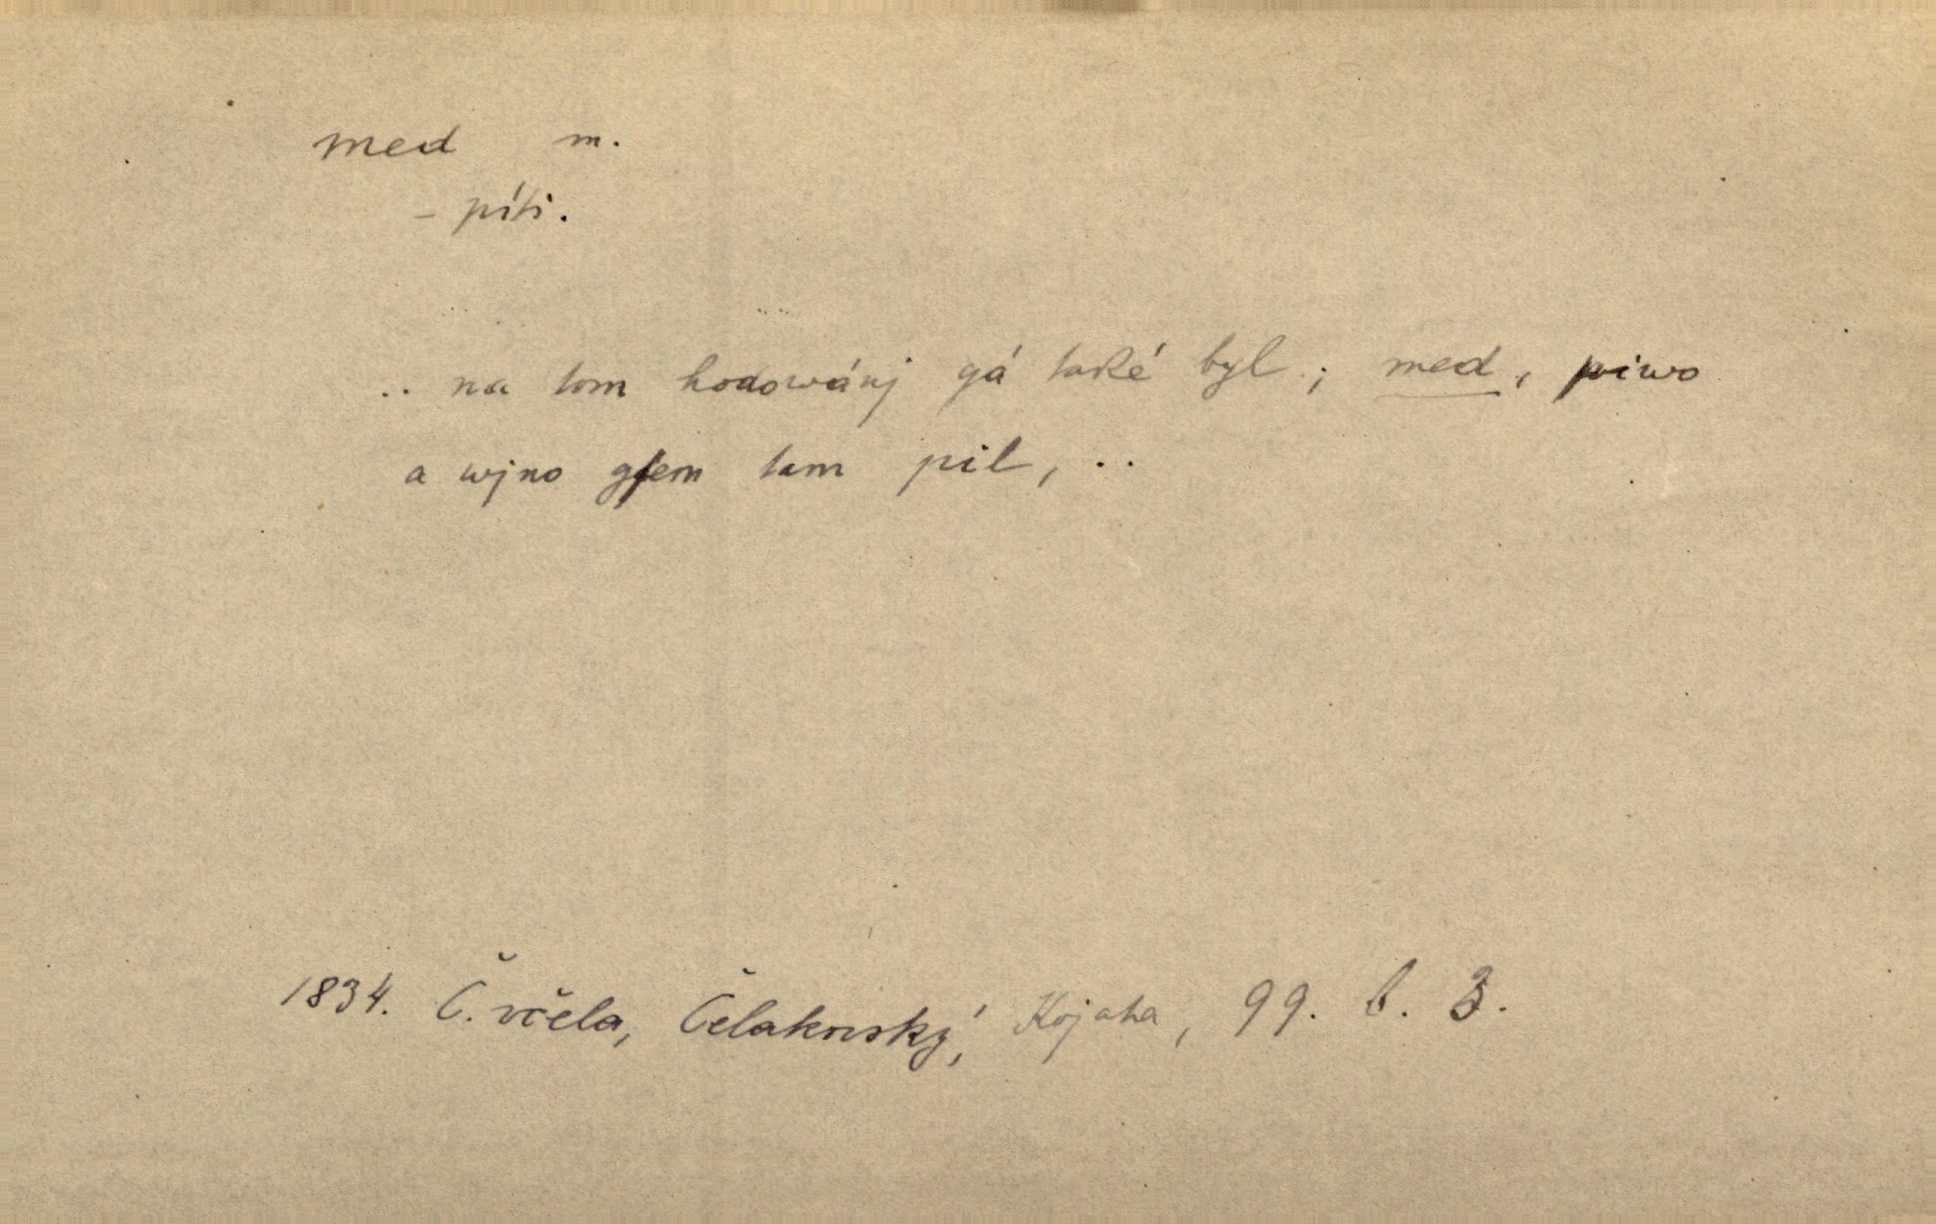 med m.
– píti.
.. na tom hodowánj gá také byl; med, piwo
a wjno gſem tam pil, ..
1834. Č. včela, Čelakovský, 99. b. 3.